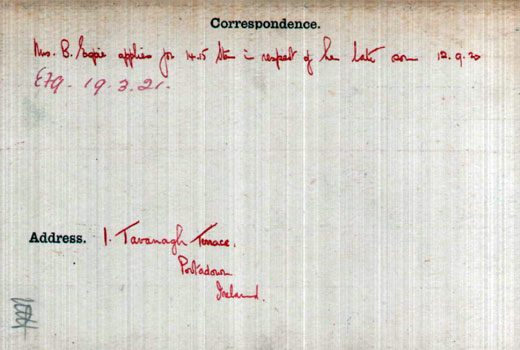 Correspondence.
Mrs. B. Espie applies for 14.15 Star in respect of her late son 12.9.20
EF9. 19.3.21.
Address. 1. Tavanagh Terrace.
Portadown
Ireland.